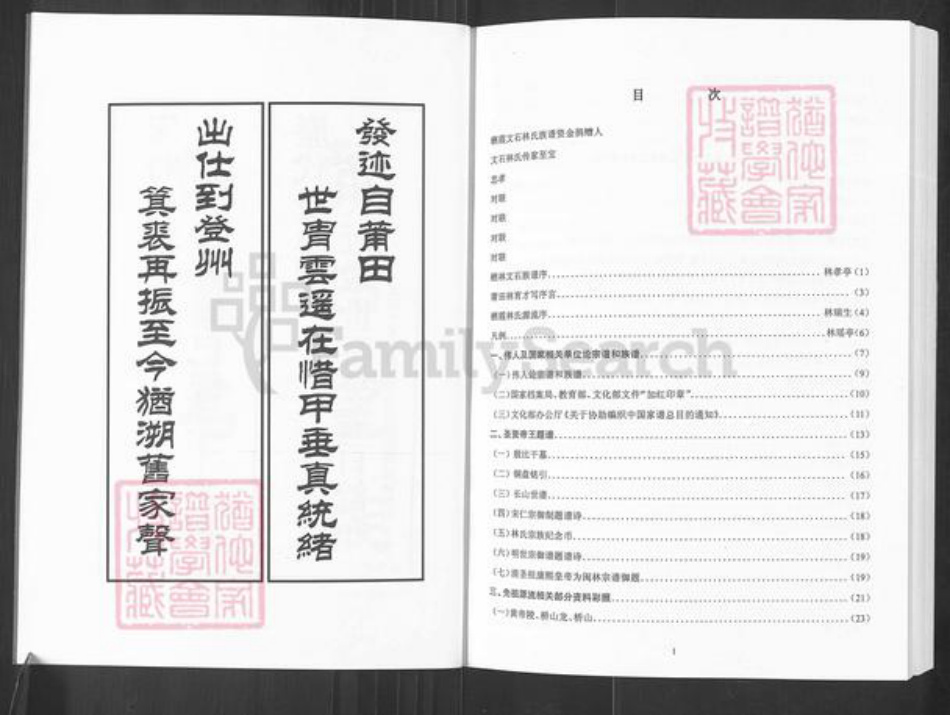 發迹自莆田
世胄雲遥在惜甲垂真統緒
出仕到登州
箕裘再振至今猶溯舊家聲
目 次
栖霞文石林氏族谱资金捐赠人
文石林氏传家至宝
忠孝
对联
对联
对联
对联
栖林文石族谱序 林孝亭(1)
莆田林育才写序言 (3)
栖霞林氏源流序 林瑞生(4)
凡例 林瑶亭(6)
一、伟人及国家相关单位论宗谱和族谱 (7)
(一)伟人论宗谱和族谱 (9)
(二)国家档案局、教育部、文化部文件“加红印章” (10)
(三)文化部办公厅《关于协助编织中国家谱总目的通知》 (11)
二、圣贤帝王题谱 (13)
(一)殷比干墓 (15)
(二)铜盘铭引 (16)
(三)长山世谱 (17)
(四)宋仁宗御制题谱诗 (18)
(五)林氏宗族纪念币 (18)
(六)明世宗御谱题谱诗 (19)
(七)清圣祖康熙皇帝为闽林宗谱御题 (19)
三、先祖源流相关部分资料彩照 (21)
(一)黄帝陵、桥山龙、桥山 (23)
1
FamilySearch